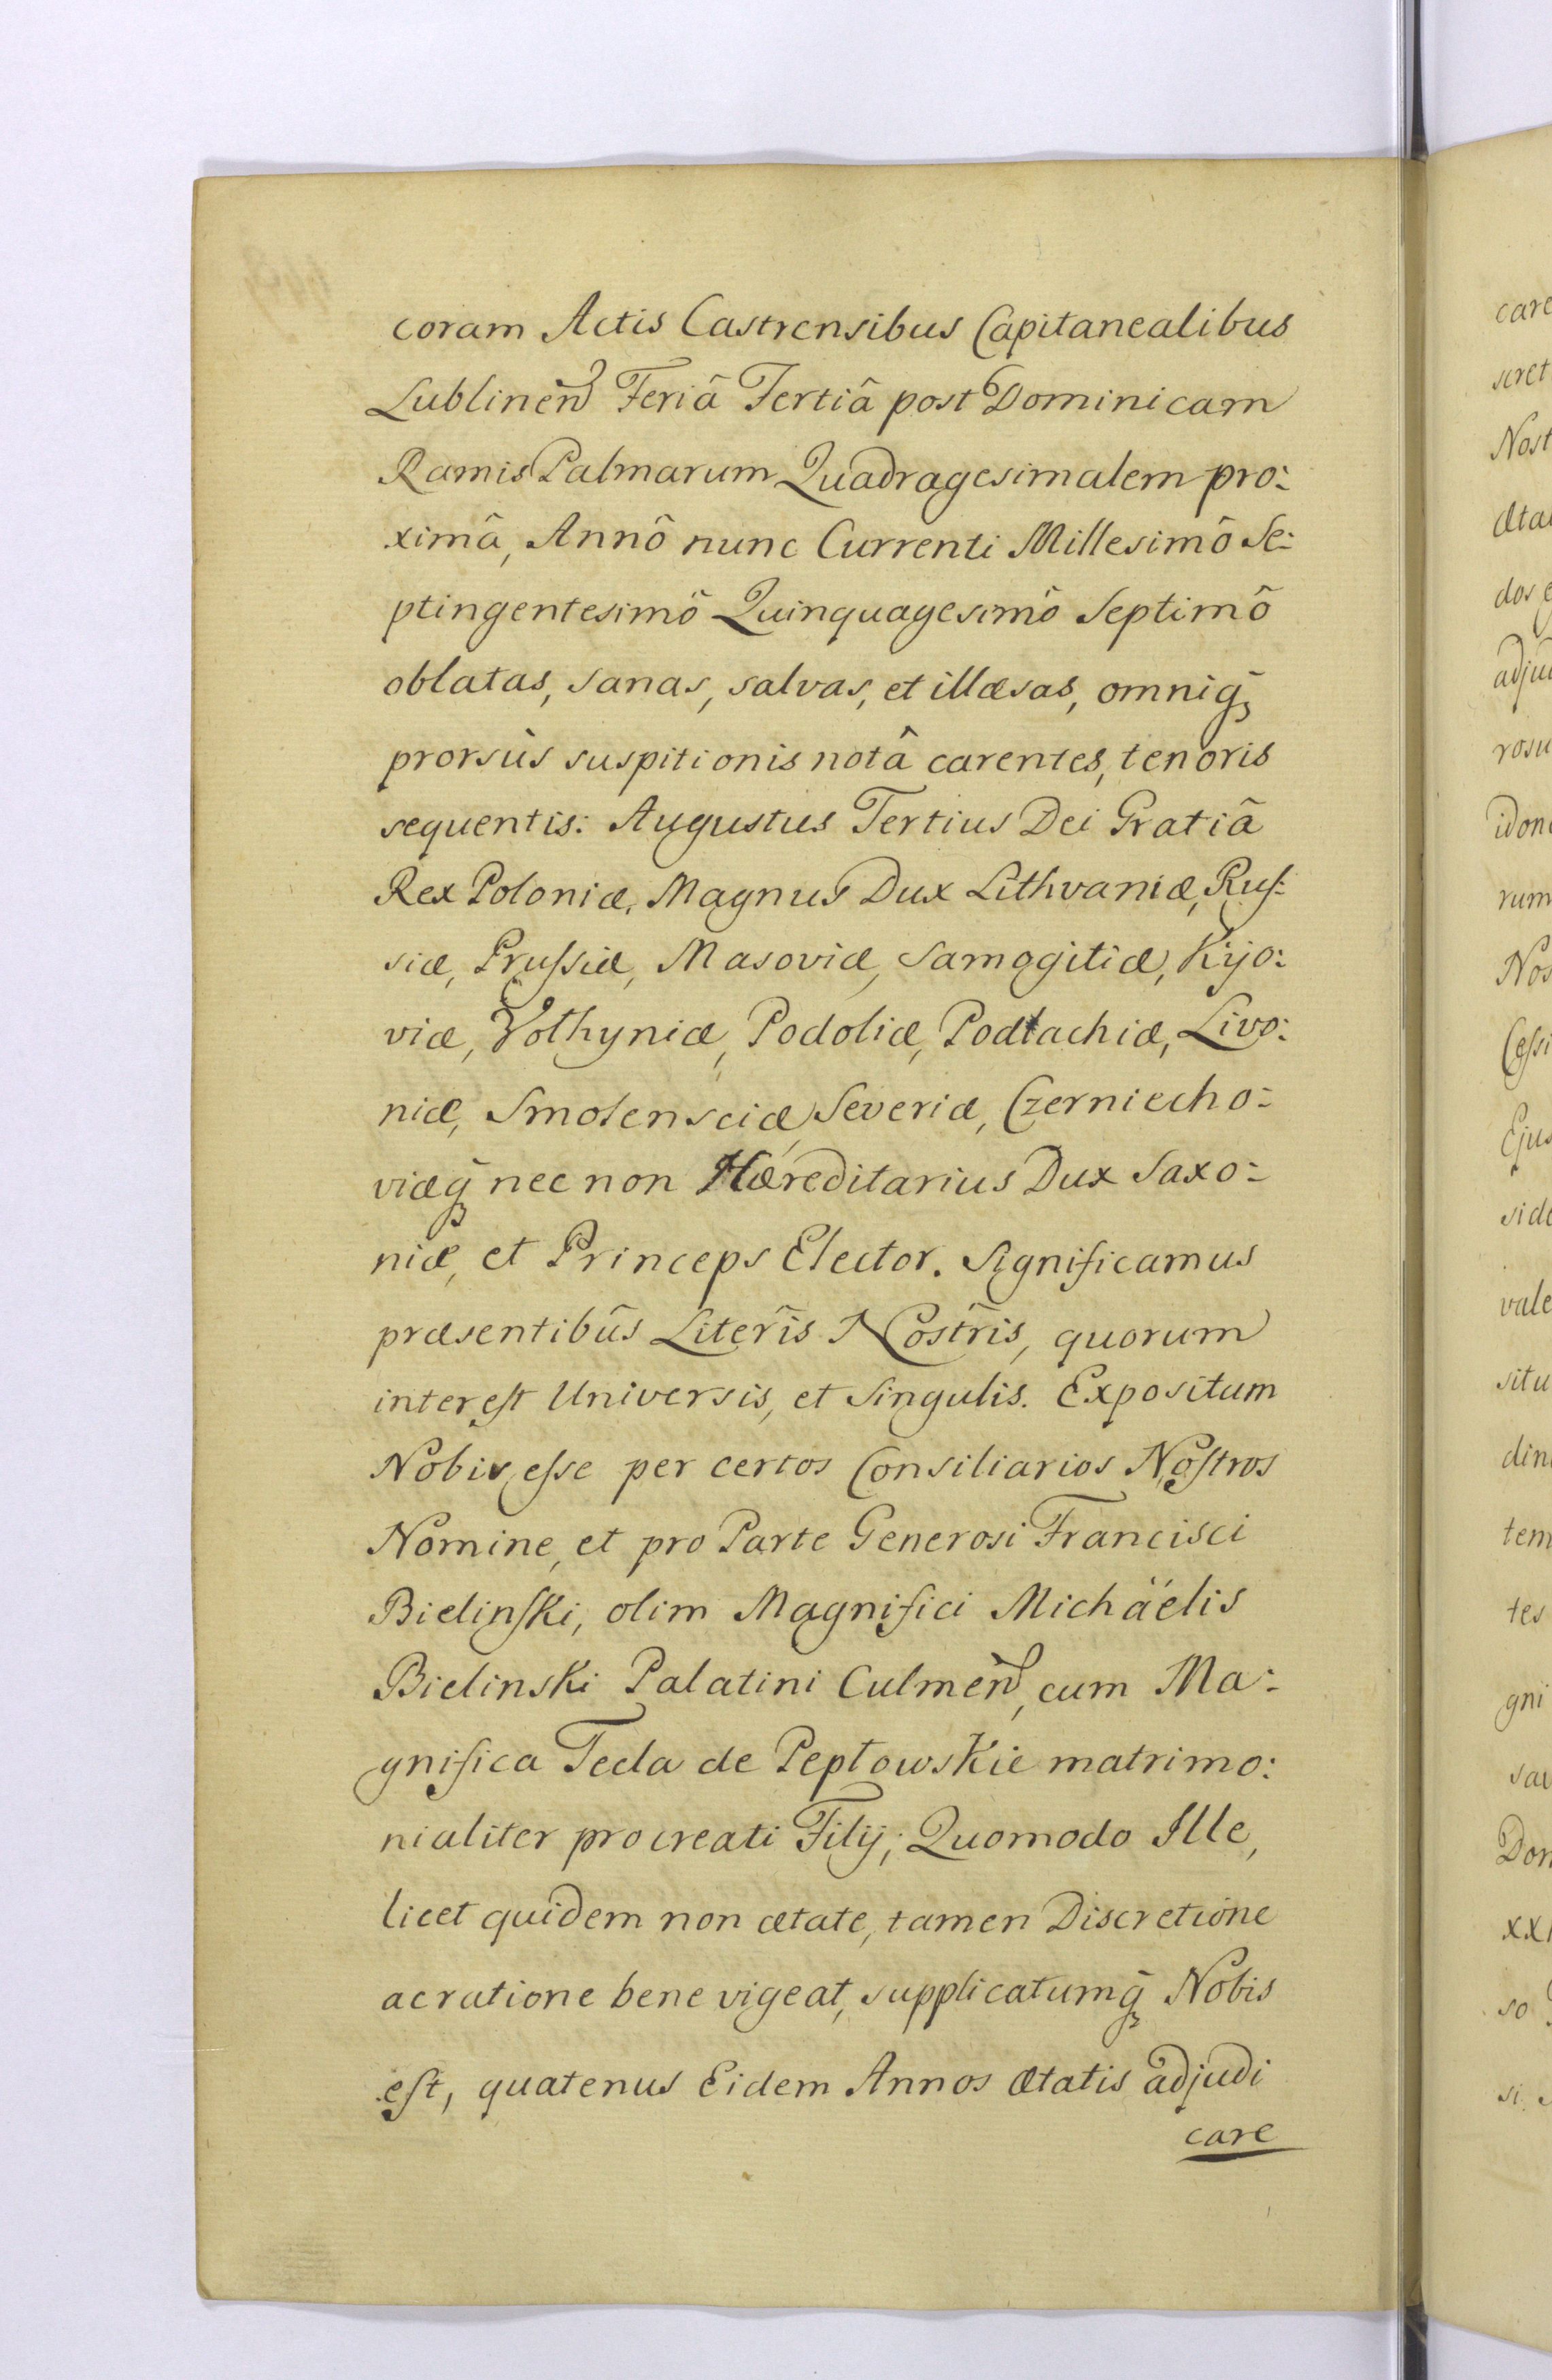 coram Actis Castrensibus Capitanealibus
Lublinen̄ Feriâ Tertiâ post Dominicam
Ramis Palmarum Quadragesimalem pro:
ximâ, Annô nunc Currenti Millesimô Se:
ptingentesimô Quinquagesimô Septimô
oblatas, sanas, salvas, et illæsas, omniq̃
prorsùs suspitionis notâ carentes, tenoris
sequentis: Augustus Tertius Dei Gratiâ
Rex Poloniæ, Magnus Dux Lithvaniæ, Ruſ:
siæ, Pruſsiæ, Masoviæ, Samogitiæ, Kijo:
viæ, Volhyniæ, Podoliæ, Podlachiæ, Livo:
niæ, Smolensciæ, Severiæ, Czerniecho:
viæq̃ nec non Hæreditarius Dux Saxo:
niæ, et Princeps Elector. Significamus
præsentibûs Literîs Nostrîs, quorum
intereſt Universis, et Singulis. Expositum
Nobis eſse per certos Consiliarios Noſtros
Nomine, et pro Parte Generosi Francisci
Bielinſki, olim Magnifici Michäelis
Bielinski Palatini Culmen̄, cum Ma:
gnifica Tecla de Pepłowskie matrimo:
nialiter procreati Filij; Quomodo Ille,
licet quidem non ætate, tamen Discretione
ac ratione bene vigeat, supplicatumq̃ Nobis
eſt, quatenus Eidem Annos ætatis adjudi
care